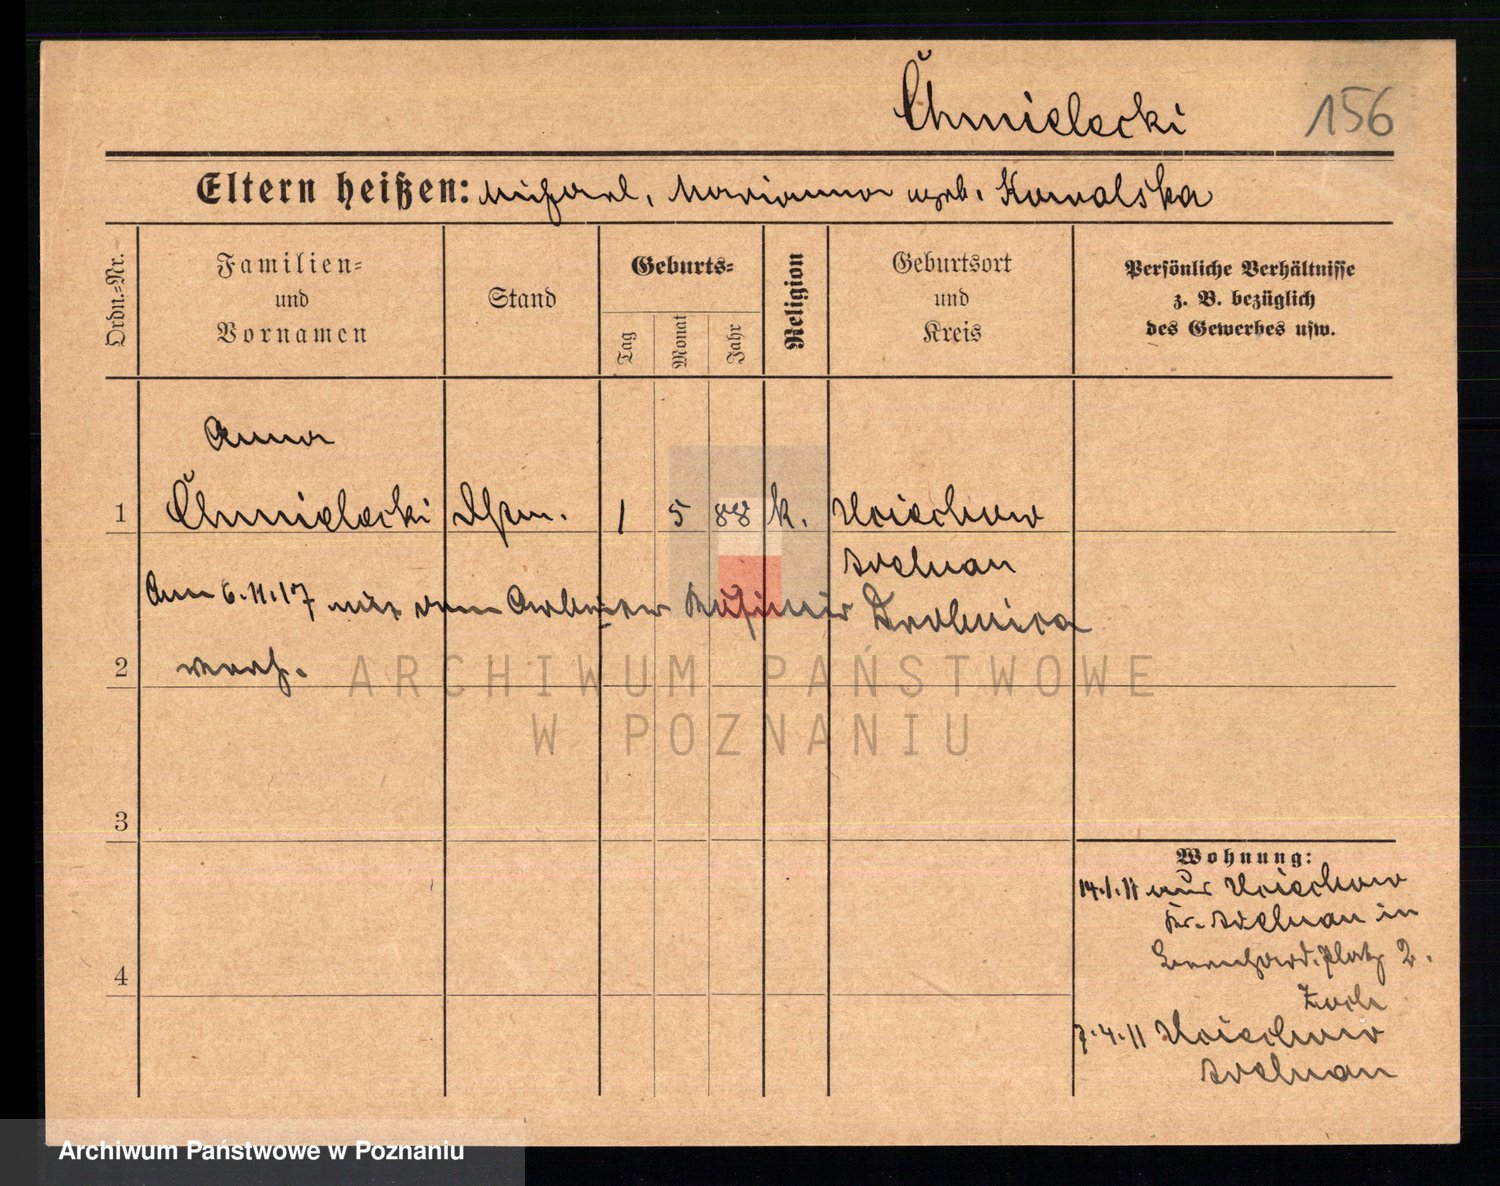 Chmielecki
156
Eltern heißen: Michael, Marianna geb. Kowalska
Ordn.-Nr.
Familien-
und
Vornamen
Stand
Geburts-
Tag
Monat
Jahr
Religion
Geburtsort
und
Kreis
Persönliche Verhältnisse
z. B. bezüglich
des Gewerbes usw.
Anna
1 Chmielecki 1 5 88 k.
Am 6.11.17 mit dem Arbeiter Kasimir
2 verh.
ARCHIWUM PAŃSTWOWE
W POZNANIU
3
4
Wohnung:
14.1.11 aus
Kr. in
Bernhard. Platz 2.
7.4.11
Archiwum Państwowe w Poznaniu